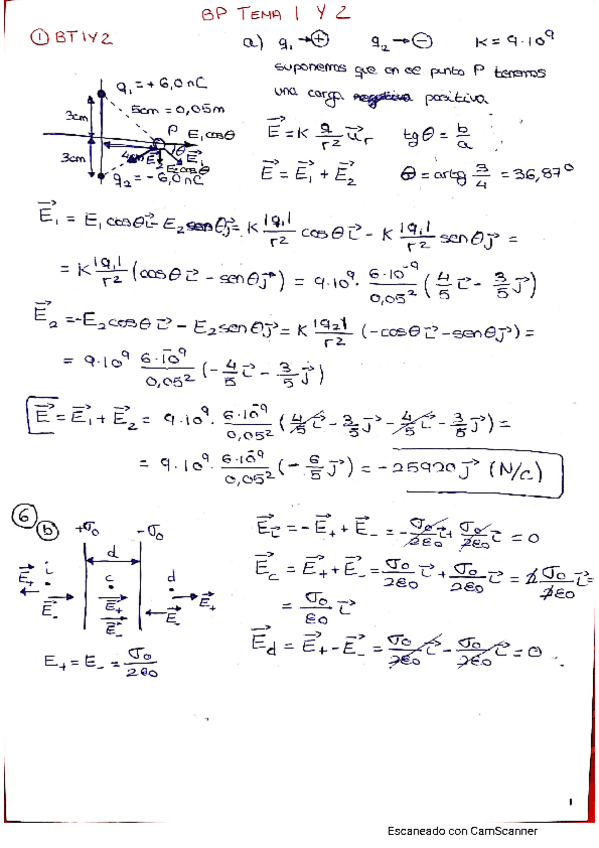 BP TEMA 1 Y 2
① BT1Y2
a) q₁→⊕ q₂→⊖ K = 9·10⁹
suponemos que en el punto P tenemos
una carga negativa positiva
q₁ = +6,0 nC
5cm = 0,05m
3cm
P E₁cosθ
θ
4cm E₂ E₁
3cm
q₂ = -6,0 nC
E⃗ = K q/r² u⃗r tgθ = b/a
E⃗ = E⃗₁ + E⃗₂ θ = artg 3/4 = 36,87º
E⃗₁ = E₁cosθ i⃗ - E₂senθ j⃗ = K |q₁|/r² cosθ i⃗ - K |q₁|/r² senθ j⃗ =
= K |q₁|/r² (cosθ i⃗ - senθ j⃗) = 9·10⁹ · 6·10⁻⁹/0,05² (4/5 i⃗ - 3/5 j⃗)
E⃗₂ = -E₂cosθ i⃗ - E₂senθ j⃗ = K |q₂|/r² (-cosθ i⃗ - senθ j⃗) =
= 9·10⁹ 6·10⁻⁹/0,05² (-4/5 i⃗ - 3/5 j⃗)
E⃗ = E⃗₁ + E⃗₂ = 9·10⁹ · 6·10⁻⁹/0,05² (4/5 i⃗ - 3/5 j⃗ - 4/5 i⃗ - 3/5 j⃗) =
= 9·10⁹ · 6·10⁻⁹/0,05² (-6/5 j⃗) = -25920 j⃗ (N/C)
⑥
ⓑ +σ₀ -σ₀
d
i c d
E⃗₊ E⃗₊ E⃗₊
E⃗₋ E⃗₋ E⃗₋
E₊ = E₋ = σ₀/2ε₀
E⃗i = -E⃗₊ + E⃗₋ = -σ₀/2ε₀ i⃗ + σ₀/2ε₀ i⃗ = 0
E⃗c = E⃗₊ + E⃗₋ = σ₀/2ε₀ i⃗ + σ₀/2ε₀ i⃗ = 2σ₀/2ε₀ i⃗ =
= σ₀/ε₀ i⃗
E⃗d = E⃗₊ - E⃗₋ = σ₀/2ε₀ i⃗ - σ₀/2ε₀ i⃗ = 0
1
Escaneado con CamScanner